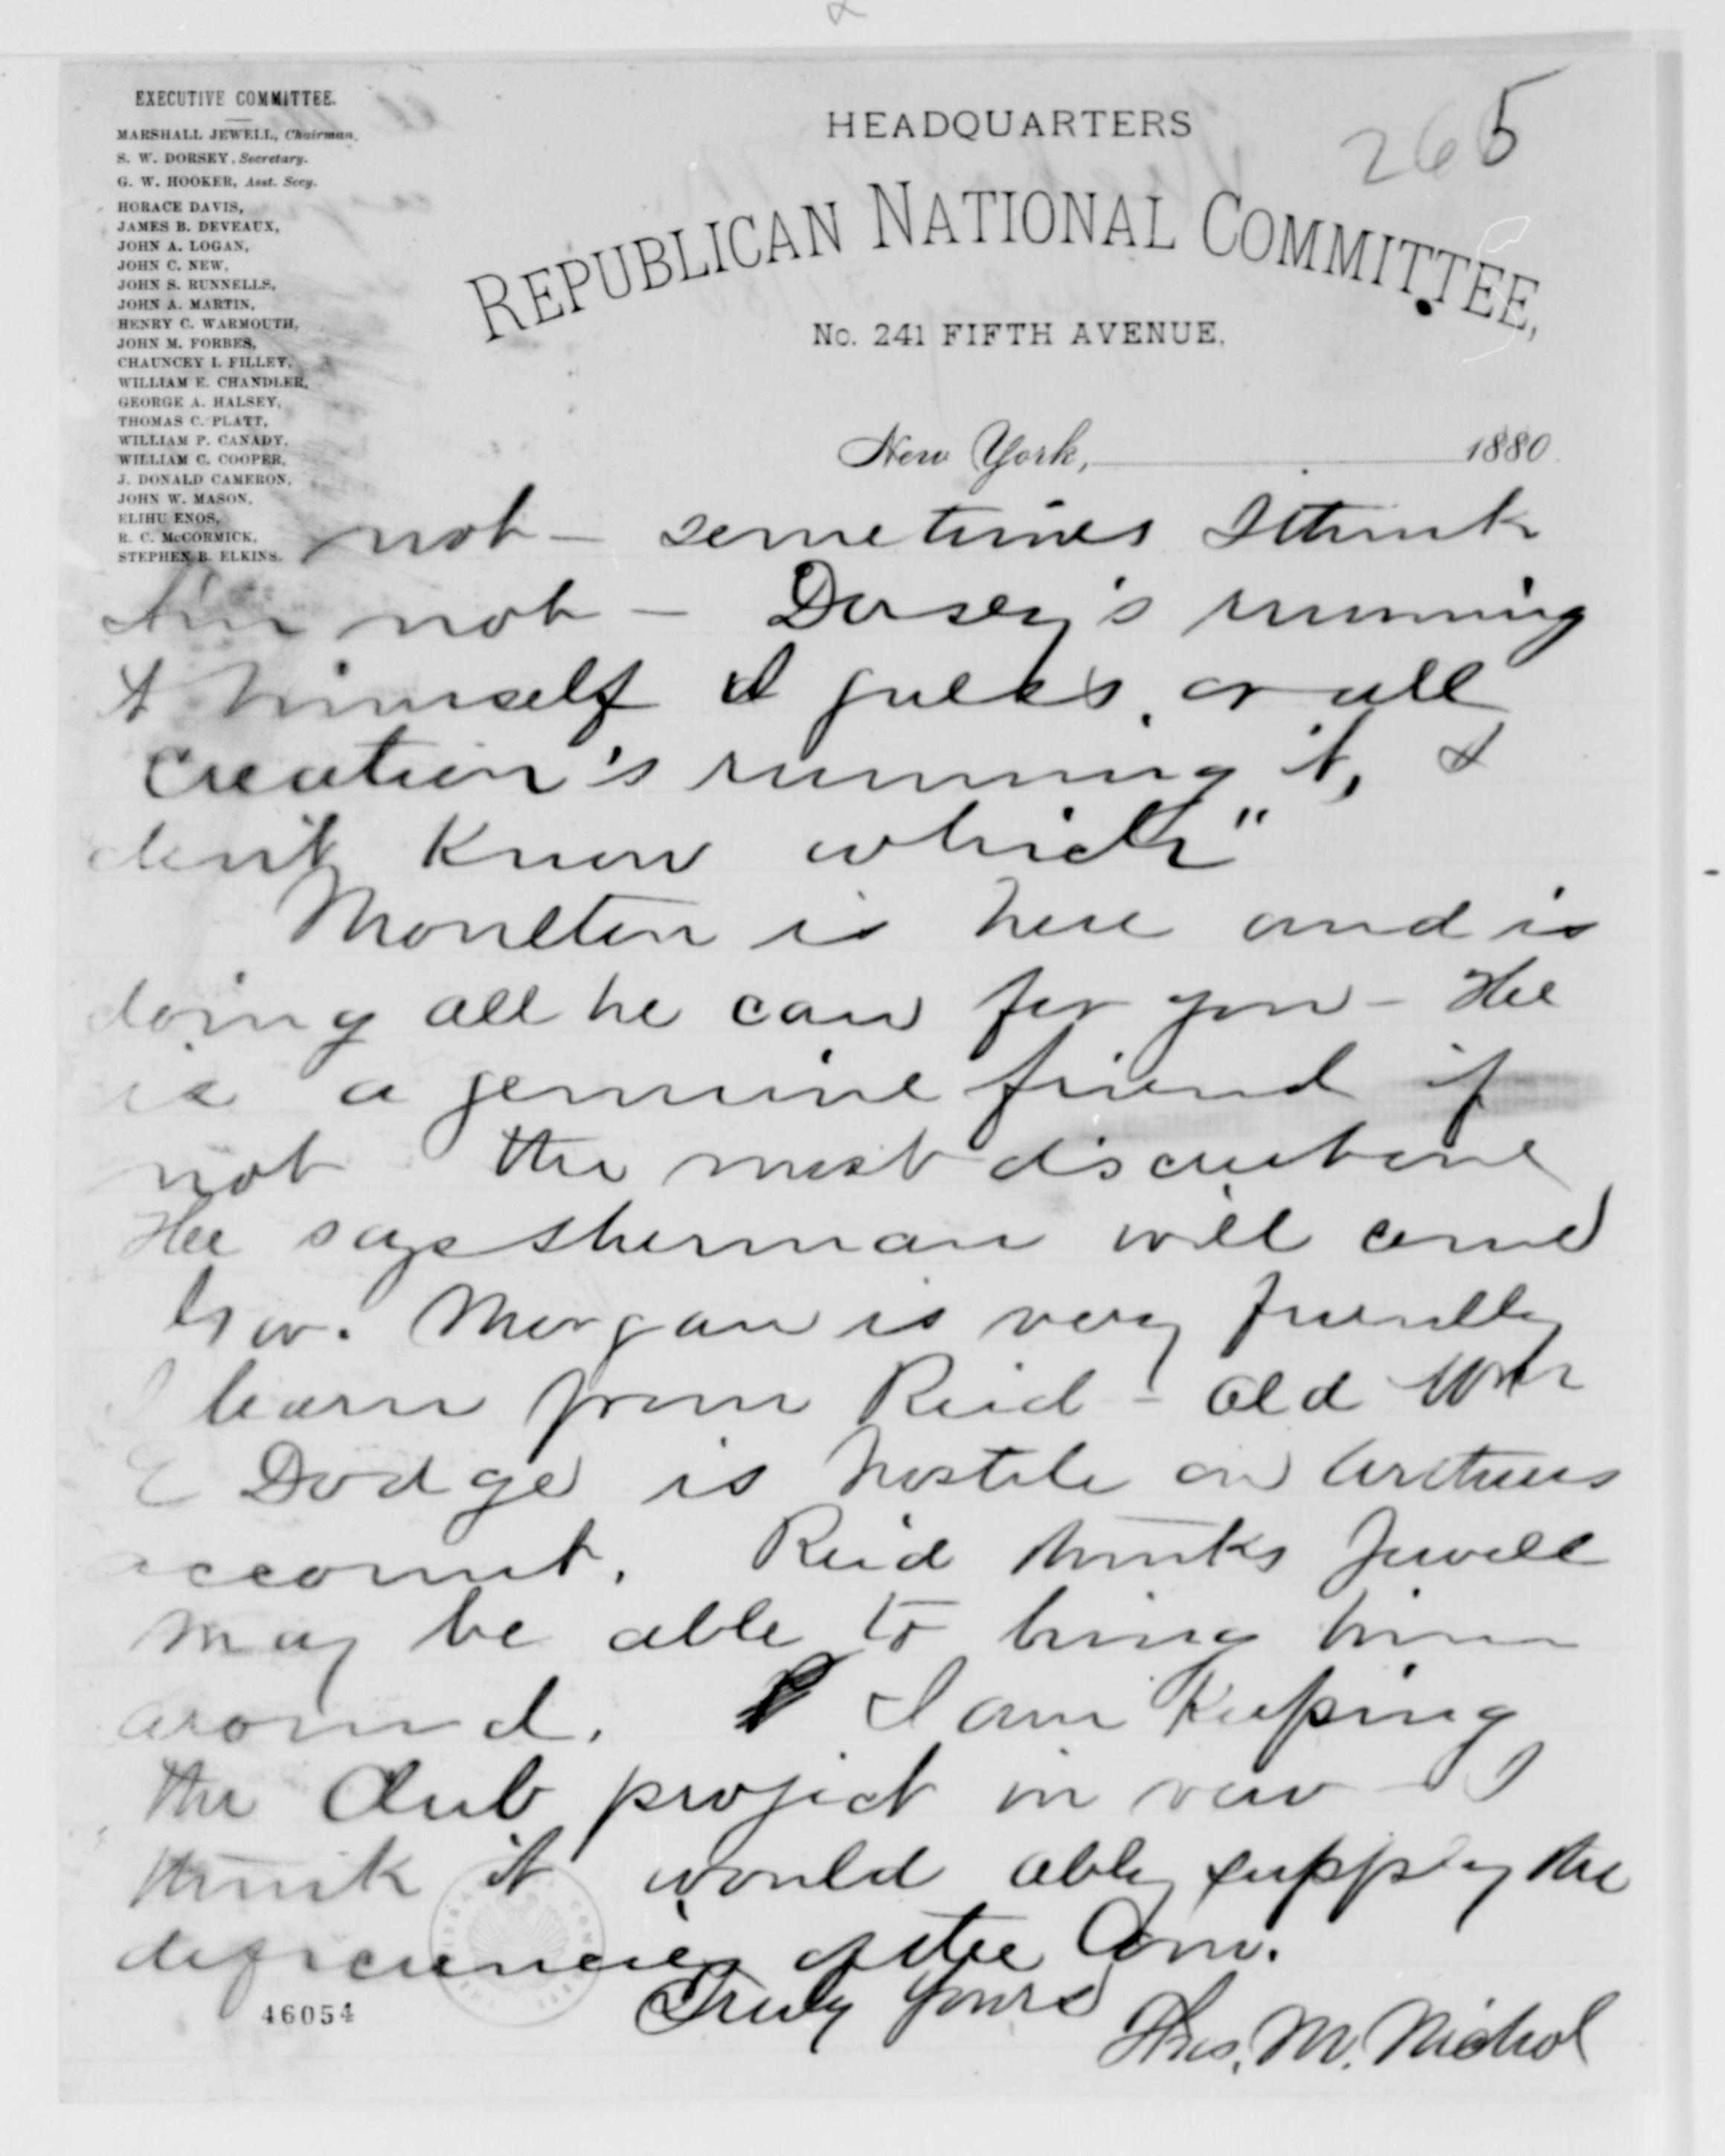 EXECUTIVE COMMITTEE.
MARSHALL JEWELL, Chairman.
S. W. DORSEY, Secretary.
G. W. HOOKER, Asst. Secy.
HORACE DAVIS,
JAMES B. DEVEAUX,
JOHN A. LOGAN,
JOHN C. NEW,
JOHN S. RUNNELLS,
JOHN A. MARTIN,
HENRY C. WARMOUTH,
JOHN M. FORBES,
CHAUNCEY I. FILLEY,
WILLIAM E. CHANDLER,
GEORGE A. HALSEY,
THOMAS C. PLATT,
WILLIAM P. CANADY,
WILLIAM C. COOPER,
J. DONALD CAMERON,
JOHN W. MASON,
ELIHU ENOS,
R. C. McCORMICK,
STEPHEN B. ELKINS.
HEADQUARTERS
265
REPUBLICAN NATIONAL COMMITTEE,
No. 241 FIFTH AVENUE.
New York, 1880.
not – sometimes I think
I'm not – Dorsey's running
it himself I guess, or all
creation's running it, I
don't know which"
Moulton is here and is
doing all he can for you – He
is a genuine friend if
not the most discreet one
He says Sherman will come
Gov. Morgan is very friendly
I learn from Reid – Old Wm
E Dodge is hostile on Arthurs
account. Reid thinks Jewell
may be able to bring him
around. I am keeping
the Club project in view – I
think it would ably supply the
deficiencies of the Com.
Truly yours
Thos. M. Nichol
46054